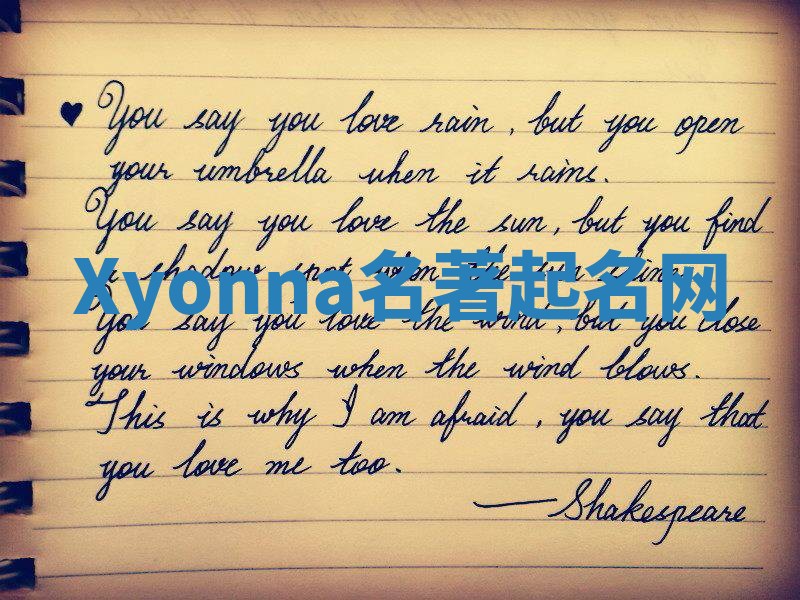 ♥ You say you love rain, but you open
your umbrella when it rains.
You say you love the sun, but you find
a shadow spot when the sun shines.
Xyonna名著起名网
You say you love the wind, but you close
your windows when the wind blows.
This is why I am afraid, you say that
you love me too.
—Shakespeare